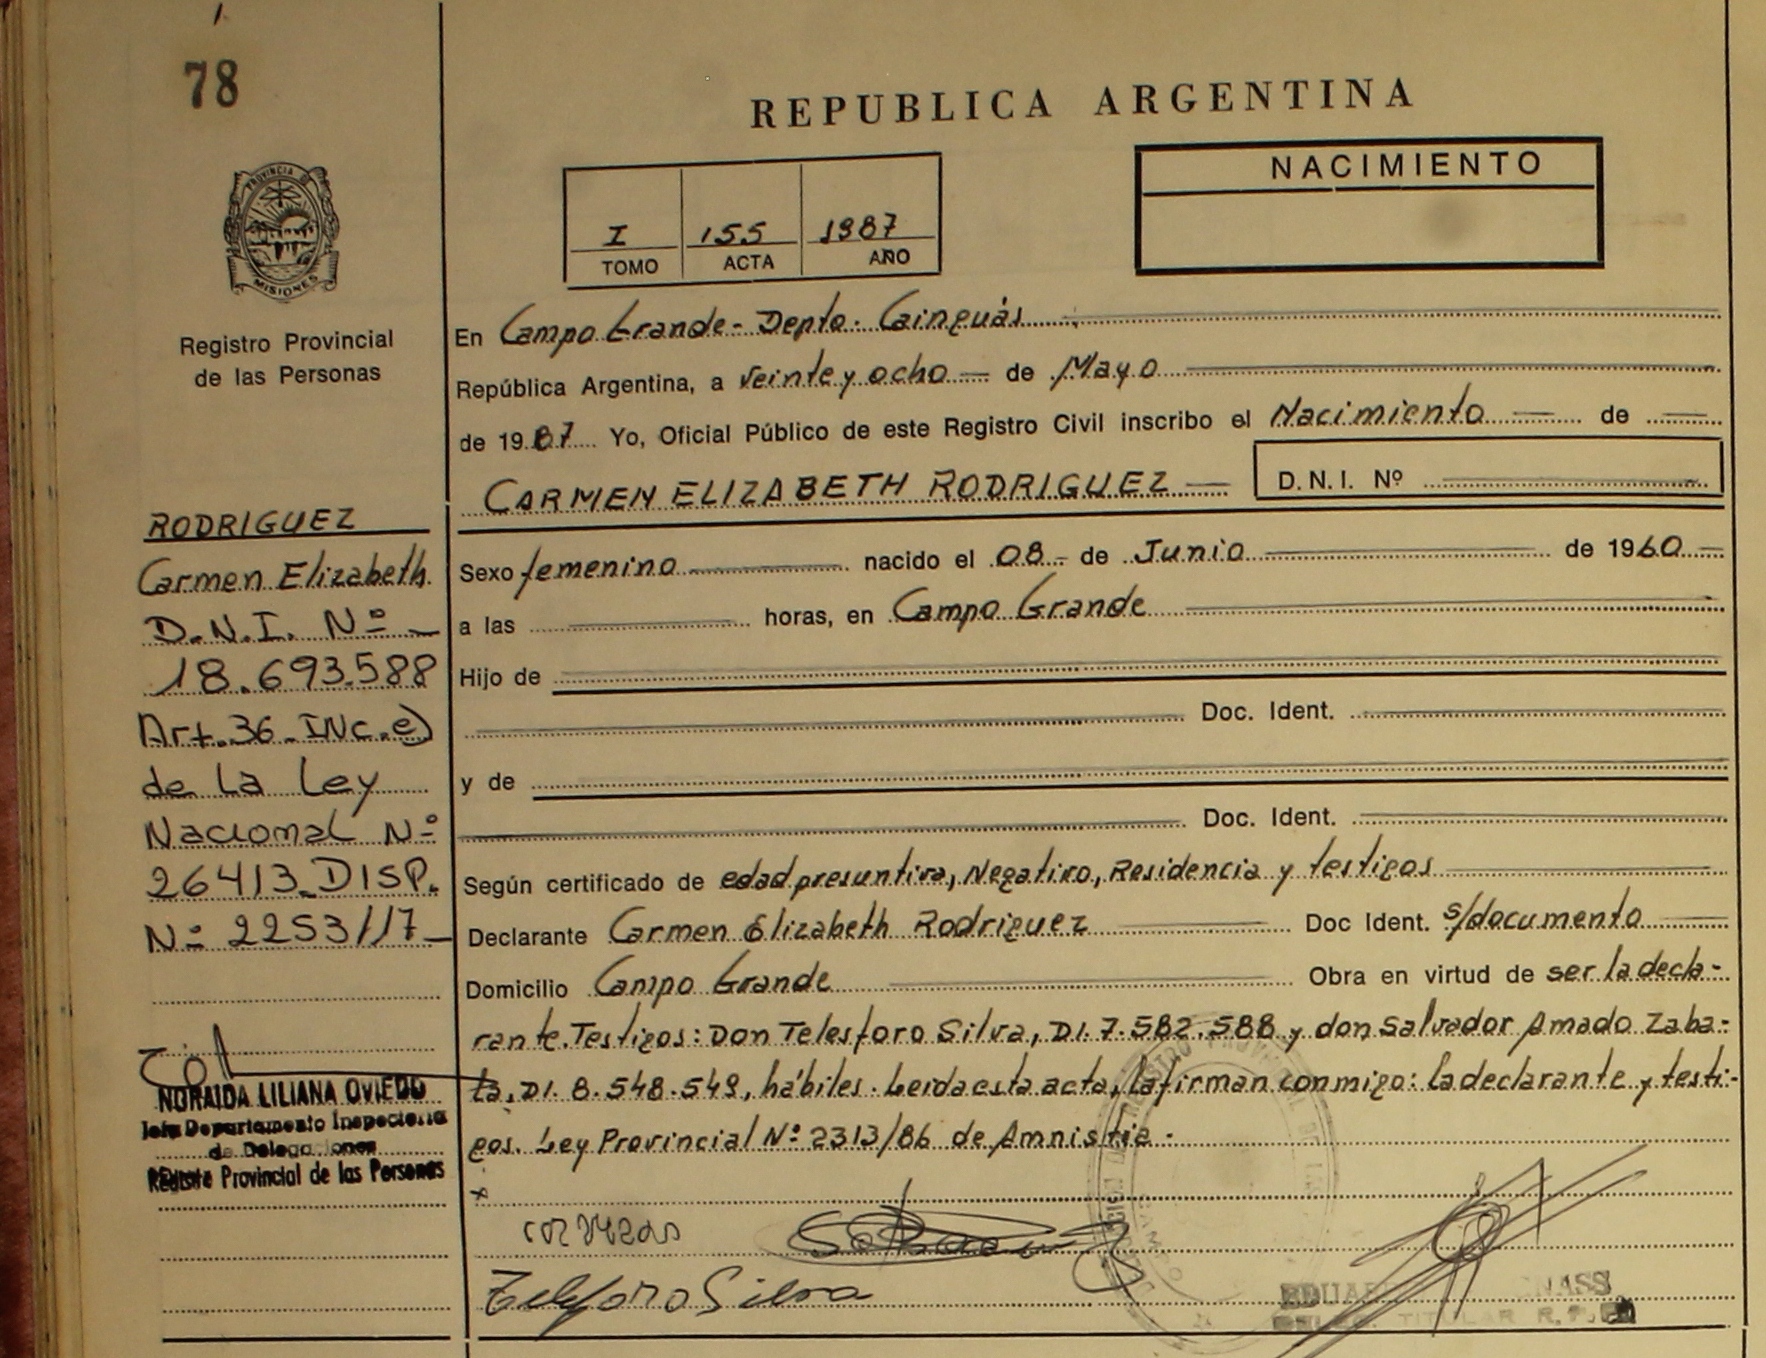 78
REPUBLICA ARGENTINA
PROVINCIA DE
MISIONES
Registro Provincial
de las Personas
I 155 1987
TOMO ACTA AÑO
NACIMIENTO
En Campo Grande - Depto. Cainguás
República Argentina, a veinte y ocho de Mayo
de 1987 Yo, Oficial Público de este Registro Civil inscribo el Nacimiento de
CARMEN ELIZABETH RODRIGUEZ D.N.I. Nº
Sexo femenino nacido el 08 - de Junio de 1960
a las horas, en Campo Grande
Hijo de
Doc. Ident.
y de
Doc. Ident.
Según certificado de edad presuntiva, Negativo, Residencia y testigos
Declarante Carmen Elizabeth Rodriguez Doc Ident. s/documento
Domicilio Campo Grande Obra en virtud de ser la decla-
rante. Testigos: Don Telesforo Silva, DI. 7.582.588 y don Salvador Amado Zaba-
la, DI. 8.548.549, hábiles. Leida esta acta, la firman conmigo: la declarante y testi-
gos. Ley Provincial Nº 2313/86 de Amnistía.
Telesforo Silva
RODRIGUEZ
Carmen Elizabeth.
D.N.I. Nº
18.693.588
Art. 36 INC. e)
de La Ley
Nacional Nº
26413 DISP.
Nº 2253/17
NORAIDA LILIANA OVIEDO
Jefa Departamento Inspectoria
de Delegaciones
Registro Provincial de las Personas